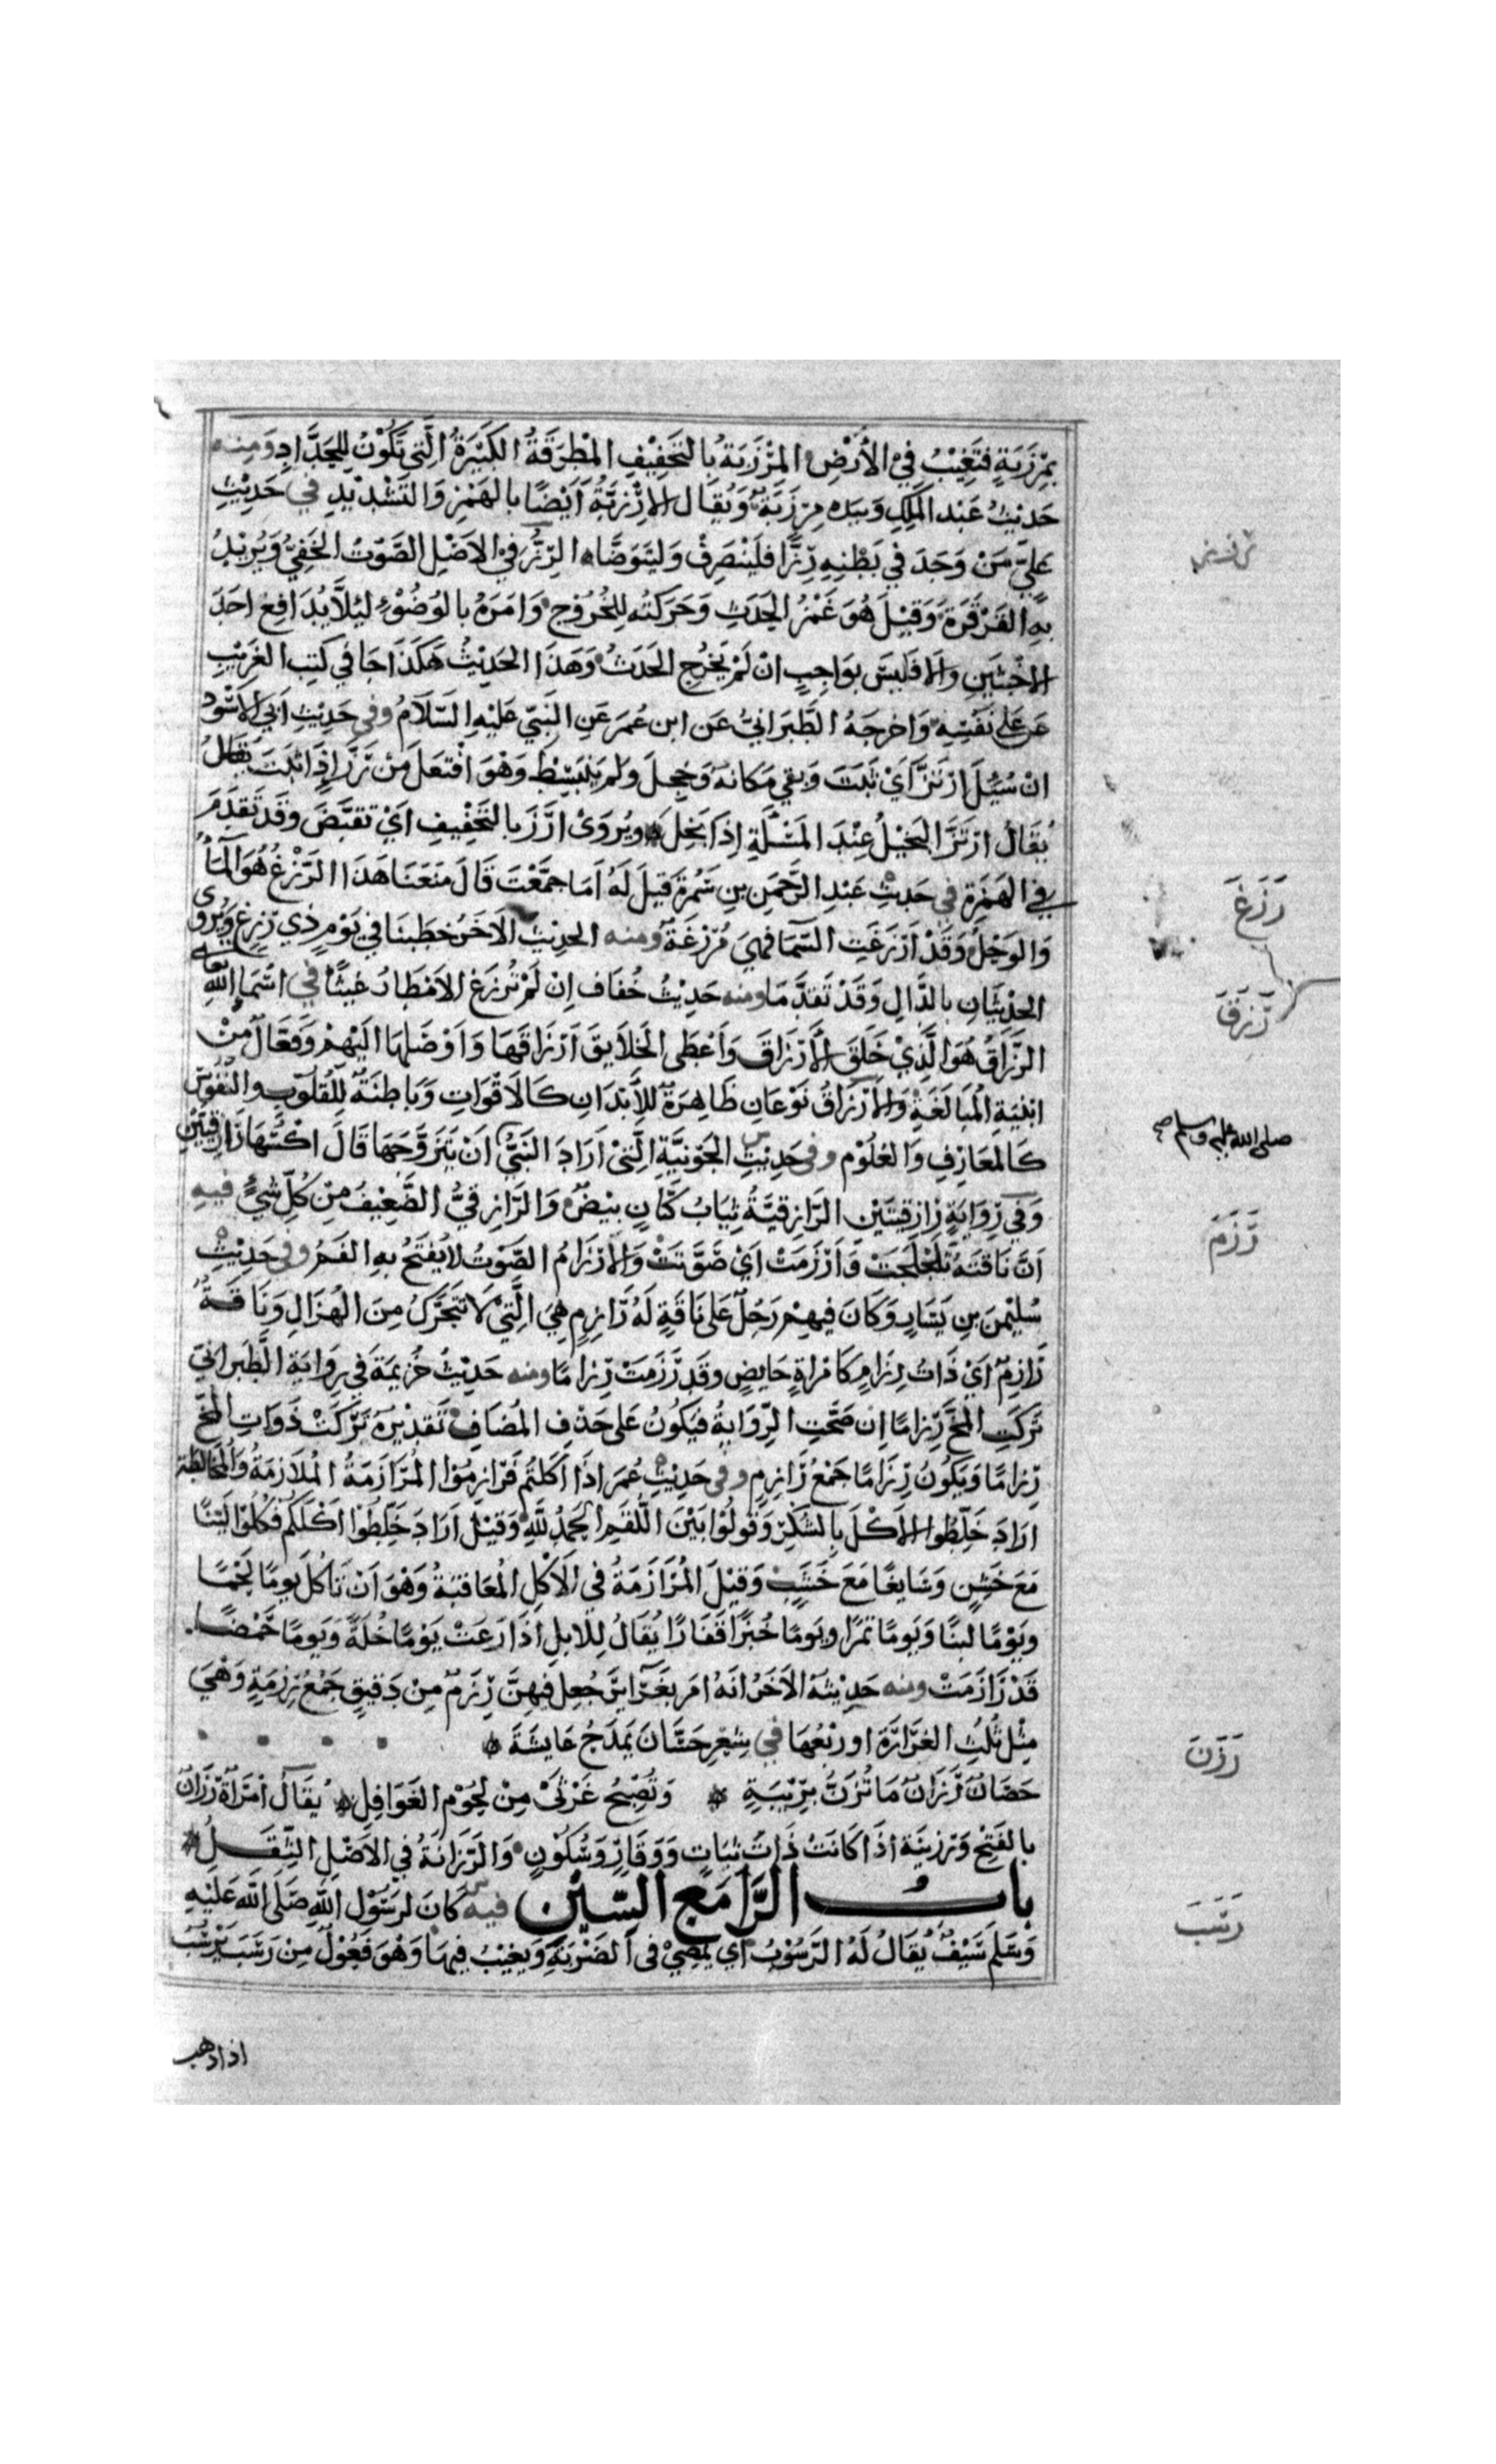 بِمِرْزَبَةٍ فَتَغِيْبُ فِي الْأَرْضِ المِرْزَبَةُ بِالتَخَفِيْفِ المِطْرَقَةُ الكَبِيْرَةُ الَّتِي تَكُوْنُ لِلحَدَّادِ وَمِنه
حَدِيْثُ عَبْدِ المَلِكِ وَبِيَدِه مِرْزَبَة وَيُقَال الإِرْزَبَّةُ أَيْضًا بِالهَمْزِ وَالتَشْدِيْدِ في حَدِيْثِ
عَلِيّ مَنْ وَجَدَ فِي بَطْنِهِ رِزًّا فَلْيَنْصَرِفْ وَلْيَتَوَضَّاه الرِّزُّ فِي الاَصْلِ الصَّوْتُ الخَفِيُّ وَيُرِيْدُ
بِهِ القَرْقَرَة وَقِيْلَ هُوَ غَمْزُ الحَدَثِ وَحَرَكَتُه لِلخُرُوْجِ وَامَرَهُ بالوُضُوْءِ لِئَلَّا يُدَافِعَ احَدَ
الاخْبَثَيْنِ وَالا فَلَيْسَ بِوَاجِبٍ انْ لَمْ يَخْرُجِ الحَدَثُ وَهَذَا الحَدِيْثُ هَكَذَا جَا في كتِبِ الغَرِيْبِ
عَن عَلي نَفْسِهِ وَاخرَجَهُ الطَّبَرَانِيُّ عَن ابن عُمَرَ عَنِ النَبِيّ عَلَيْهِ السَّلَامُ وفي حَدِيْثِ ابي الاسْوَد
انْ سُئِلَ ارْتَزَّ أَيْ ثَبَتَ وَبَقِي مَكانَهُ وَخَجِلَ وَلَم يَنْبَسِطْ وَهْوَ افْتَعَلَ مِنْ رَزَّ اِذَا ثَبَتَ يُقَالُ
يُقَالُ ارْتَزَّ البَخِيْلُ عِنْدَ المَسْئَلَةِ اِذَا بَخِلَ ويُروَى ارَزَ بالتَخْفِيْفِ ايْ تَقَبَّضَ وَقَدْ تَقَدَمَ
في الهَمْزَةِ في حَدِيْثِ عَبْدِ الرَّحْمَنِ بنِ سَمُرَةَ قِيلَ لَهُ اَمَا جَمَّعْتَ قَالَ مَنَعَنَا هَذَا الرَّزْغُ هُوَ المَاءُ
وَالوَحْلُ وَقَدْ أَرْزَغَتِ السَّمَا فَهِيَ مُرْزِغَةٌ وَمنه الحَدِيْث الاَخَرُ خَطَبَنَا في يَوْمٍ ذِي رَزَغٍ وَيُروَى
الحَدِيْثَانِ بالدَّالِ وَقَدْ تَقَدَّمَا ومنه حَدِيْثُ خُفَاف اِنْ لَمْ تُرْزِغِ الاَمْطَارُ غَيْثًا في اسْمَاء اللهِ تعالى
الرَّزَّاقُ هُوَ الَّذِيْ خَلَقَ الأَرْزَاقَ وَأَعْطَى الخَلَايِقَ اَرْزَاقَهَا وَاَوْصَلَهَا اليْهِمْ وَفَعَّالٌ مِنْ
ابْنِيَةِ المُبَالَغَةِ وَالاَرْزَاقُ نَوْعَانِ ظَاهِرَةٌ لِلأَبْدَانِ كَالاَقْوَاتِ وَبَاطِنَةٌ لِلْقُلُوبِ والنُفُوسِ
كَالمَعَارِفِ وَالعُلُوْم وفي حَدِيْثِ الجَوْنِيَّةِ الَّتِيْ أَرَادَ النَّبِيُّ أنْ يَتَزَوَّجَهَا قَالَ اكْسُهَا رَازِقِيَّيْنِ
وَفي رِوَايَةٍ رَازِقِيَّتَيْنِ الرَّازِقِيَّةُ ثِيَابُ كَتَّانٍ بِيْضٌ وَالرَّازِقِيُّ الضَّعِيْفُ مِنْ كُلِّ شَيْءٍ فيهِ
اَنَّ نَاقَتَهُ تَلَحْلَحَتْ وَأَرْزَمَتْ أيْ صَوَّتَتْ وَالإِرْزَامُ الصَّوْتُ لا يُفْتَحُ بِهِ الفَمُ وفي حَدِيْثِ
سُلَيْمنَ بنِ يَسَارٍ وَكَانَ فِيهِمْ رَجُلٌ عَلَى نَاقَةٍ لَهُ رَازِمٍ هِيَ الَّتِيْ لَا تَتَحَرَّكُ مِنَ الهُزَالِ وَنَاقَةٌ
رَازِمٌ أيْ ذَاتُ رِزَامٍ كَامْرَاةٍ حَايِضٍ وَقَدْ رَزَمَتْ رِزَامًا ومنه حَدِيْثُ خُزَيمَةَ في رِوَايَةِ الطَّبَرَانيّ
تَرَكَتِ المُخَّ رِزَامًا اِن صَحَّتِ الرِّوَايَةُ فَيَكُونُ عَلَى حَذْفِ المُضَافِ تَقدِيْرُهُ تَرَكَتْ ذَوَاتِ المُخِّ
رِزَامًا وَيَكُونُ رِزَامًا جَمْعُ رَازِمٍ وفي حَدِيْثِ عُمَرَ اذَا أَكَلتُم فَرَازِمُوْا المُرَازَمَةُ المُلَازَمَةُ وَالمُخَالَطَة
ارَادَ خَلِّطُوا الأَكْلَ بِالشُكْرِ وَقُولُوْا بَيْنَ اللُّقَمِ الحَمْدُ للهِ وَقِيْلَ ارَادَ خَلِّطُوْا اَكْلَكُم فَكُلُوْا لَيِّنًا
مَعَ خَشِنٍ وَسَايِغًا مَعَ خَشِبٍ وَقِيْلَ المُرَازَمَةُ في الاَكْلِ المُعَاقَبَةُ وَهْوَ اَنْ تَاكُلَ يَومًا لَحْمًا
وَيَوْمًا لَبَنًا وَيَومًا تَمْرًا ويَومًا خُبْزًا قَفَارًا يُقَالُ لِلابِلِ اذَا رَعَتْ يَوْمًا خُلَّةً وَيَومًا حَمْضًا
قَدْ رَازَمَتْ ومنه حَدِيْثُهُ الاَخَرُ انَهُ امَر بِغَرَايِرَ جُعِلَ فِيهِنَّ رِزَمٌ مِنْ دَقِيْقٍ جَمْعُ رِزْمَةٍ وَهْيَ
مِثْلُ ثُلُثِ الغِرَارَةِ اورُبْعُهَا في شِعْرِ حَسَّانَ يَمْدَحُ عَايِشَةَ
حَصَانٌ رَزَانٌ مَا تُزَنُّ بِرِيْبَةٍ وَتُصْبِحُ غَرْثَىْ مِنْ لُحُوْمِ الغَوَافِلِ يُقَالُ امْرَأَةٌ رَزَانٌ
بالفَتْحِ وَرَزِينَة اذَا كَانَتْ ذَاتَ ثَبَاتٍ وَوَقَارٍ وَسُكُوْنٍ وَالرَّزَانَةُ في الاَصْلِ الثِّقَلُ
بابُ الرَّا مَعَ السّين فيه كَانَ لِرَسُوْلِ اللهِ صَلَّى الله عَلَيْهِ
وَسَلَم سَيْفٌ يُقَالُ لَهُ الرَّسُوْبُ اي يَمْضِيْ في الضَرْبَةِ وَيَغِيْبُ فِيهَا وَهْوَ فَعُوْلٌ مِنْ رَسَبَ يَرْسُبُ
اذا ذهب
رَزَغَ
رَزَقَ
صلى الله عليه وسلم صح
رَزَمَ
رَزَنَ
رَسَبَ